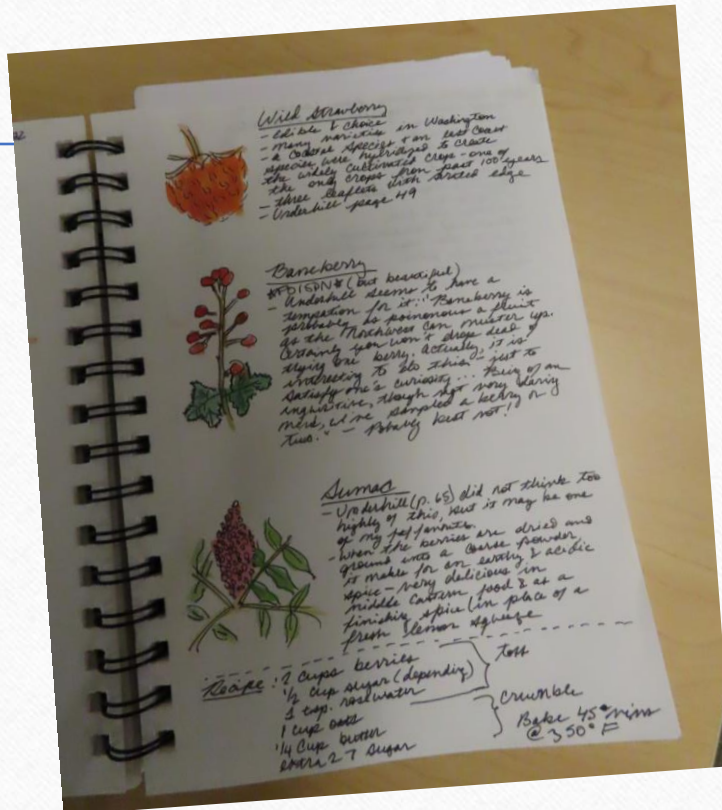 Wild Strawberry
- edible & choice
- many varieties in Washington
- a coastal species & an east coast
species were hybridized to create
the widely cultivated crop - one of
the only crops from past 100 years
- three leaflets with toothed edge
- Underhill page 49
Baneberry
*POISON* (but beautiful)
- Underhill seems to have a
temptation for it: "Baneberry is
probably as poisonous a fruit
as the Northwest can muster up.
Certainly you won't drop dead of
trying one berry. Actually, it is
interesting to do this - just to
satisfy one's curiosity... Being of an
inquisitive, though not very daring
mind, we've sampled a berry or
two." - Probably best not!
Sumac
- Underhill (p. 65) did not think too
highly of this, but it may be one
of my favorites
- When the berries are dried and
ground into a coarse powder
it makes for an earthy & acidic
spice - very delicious in
middle Eastern food & as a
finishing spice (in place of a
fresh lemon squeeze
Recipe: 2 cups berries
1/2 cup sugar (depending)
1 tsp. rosewater
toss
1 cup oats
1/4 cup butter
extra 2 T sugar
crumble
Bake 45 mins
@ 350°F